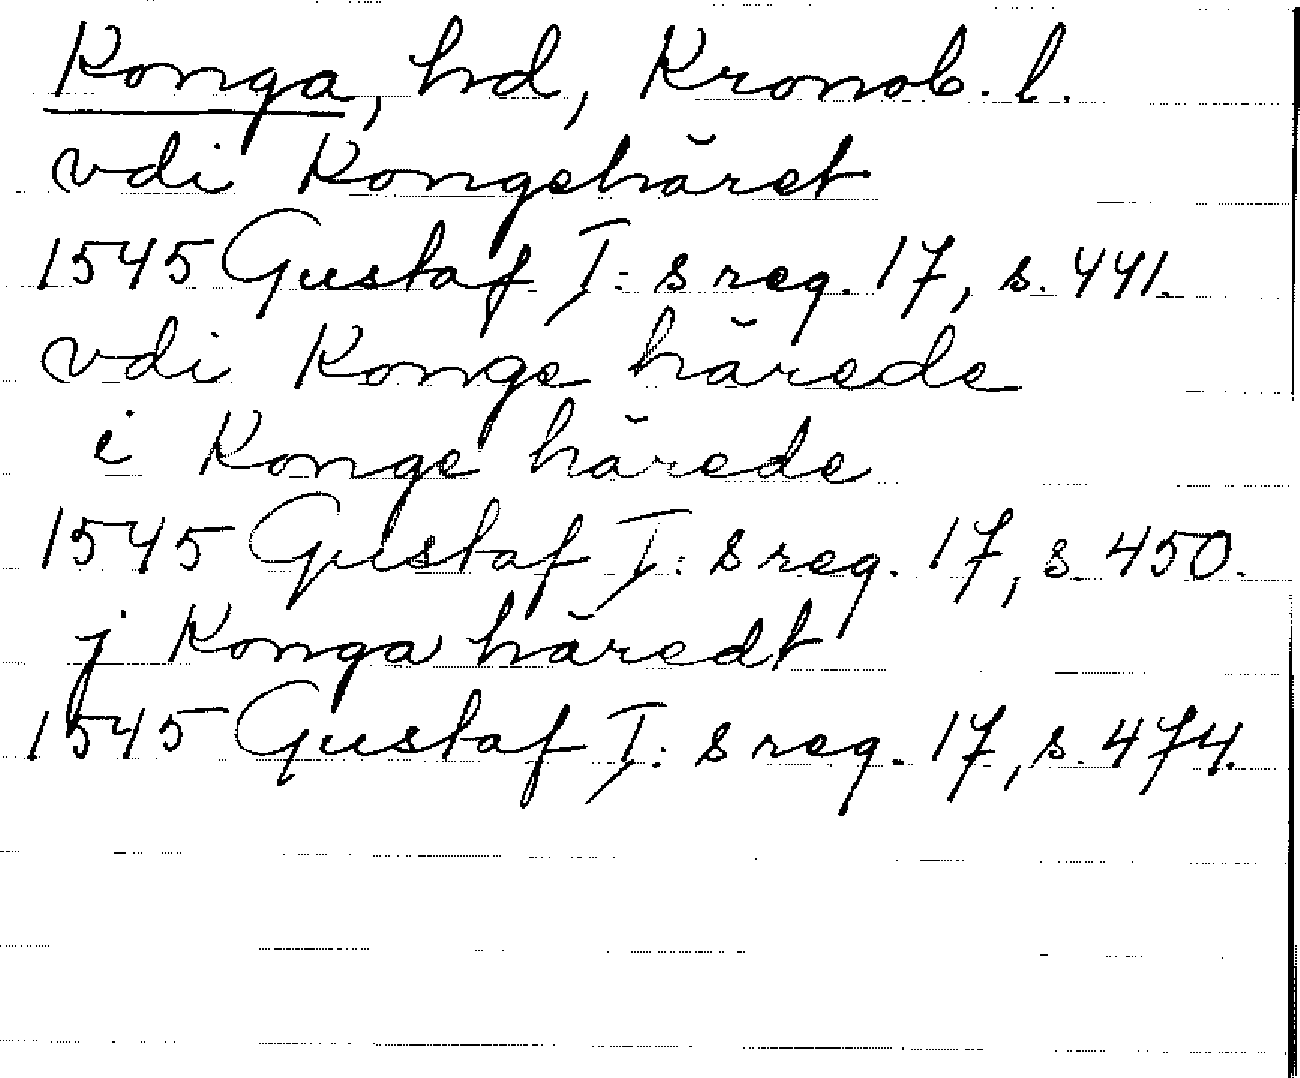 Konga, hd, Kronob. l.
vdi Kongehäret
1545 Gustaf I: s reg. 17, s. 441.
vdi Konge härede
i Konge härede
1545 Gustaf I: s reg. 17, s. 450.
j Konga häredt
1545 Gustaf I: s reg. 17, s. 474.